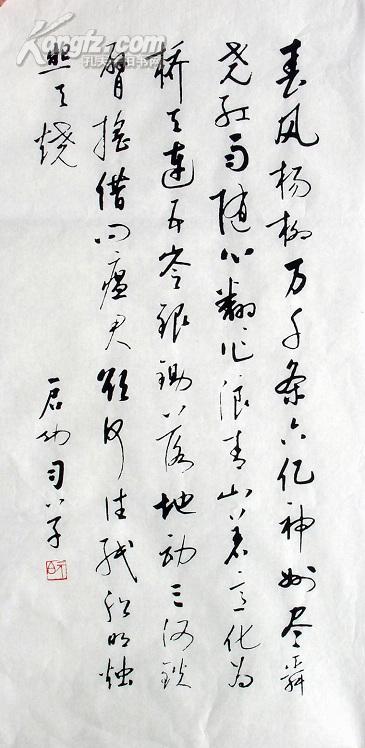 Kongfz.com
孔夫子旧书网
春风杨柳万千条六亿神州尽舜
尧红雨随心翻作浪青山着意化为
桥天连五岭银锄落地动三河铁
臂摇借问瘟君欲何往纸船明烛
照天烧